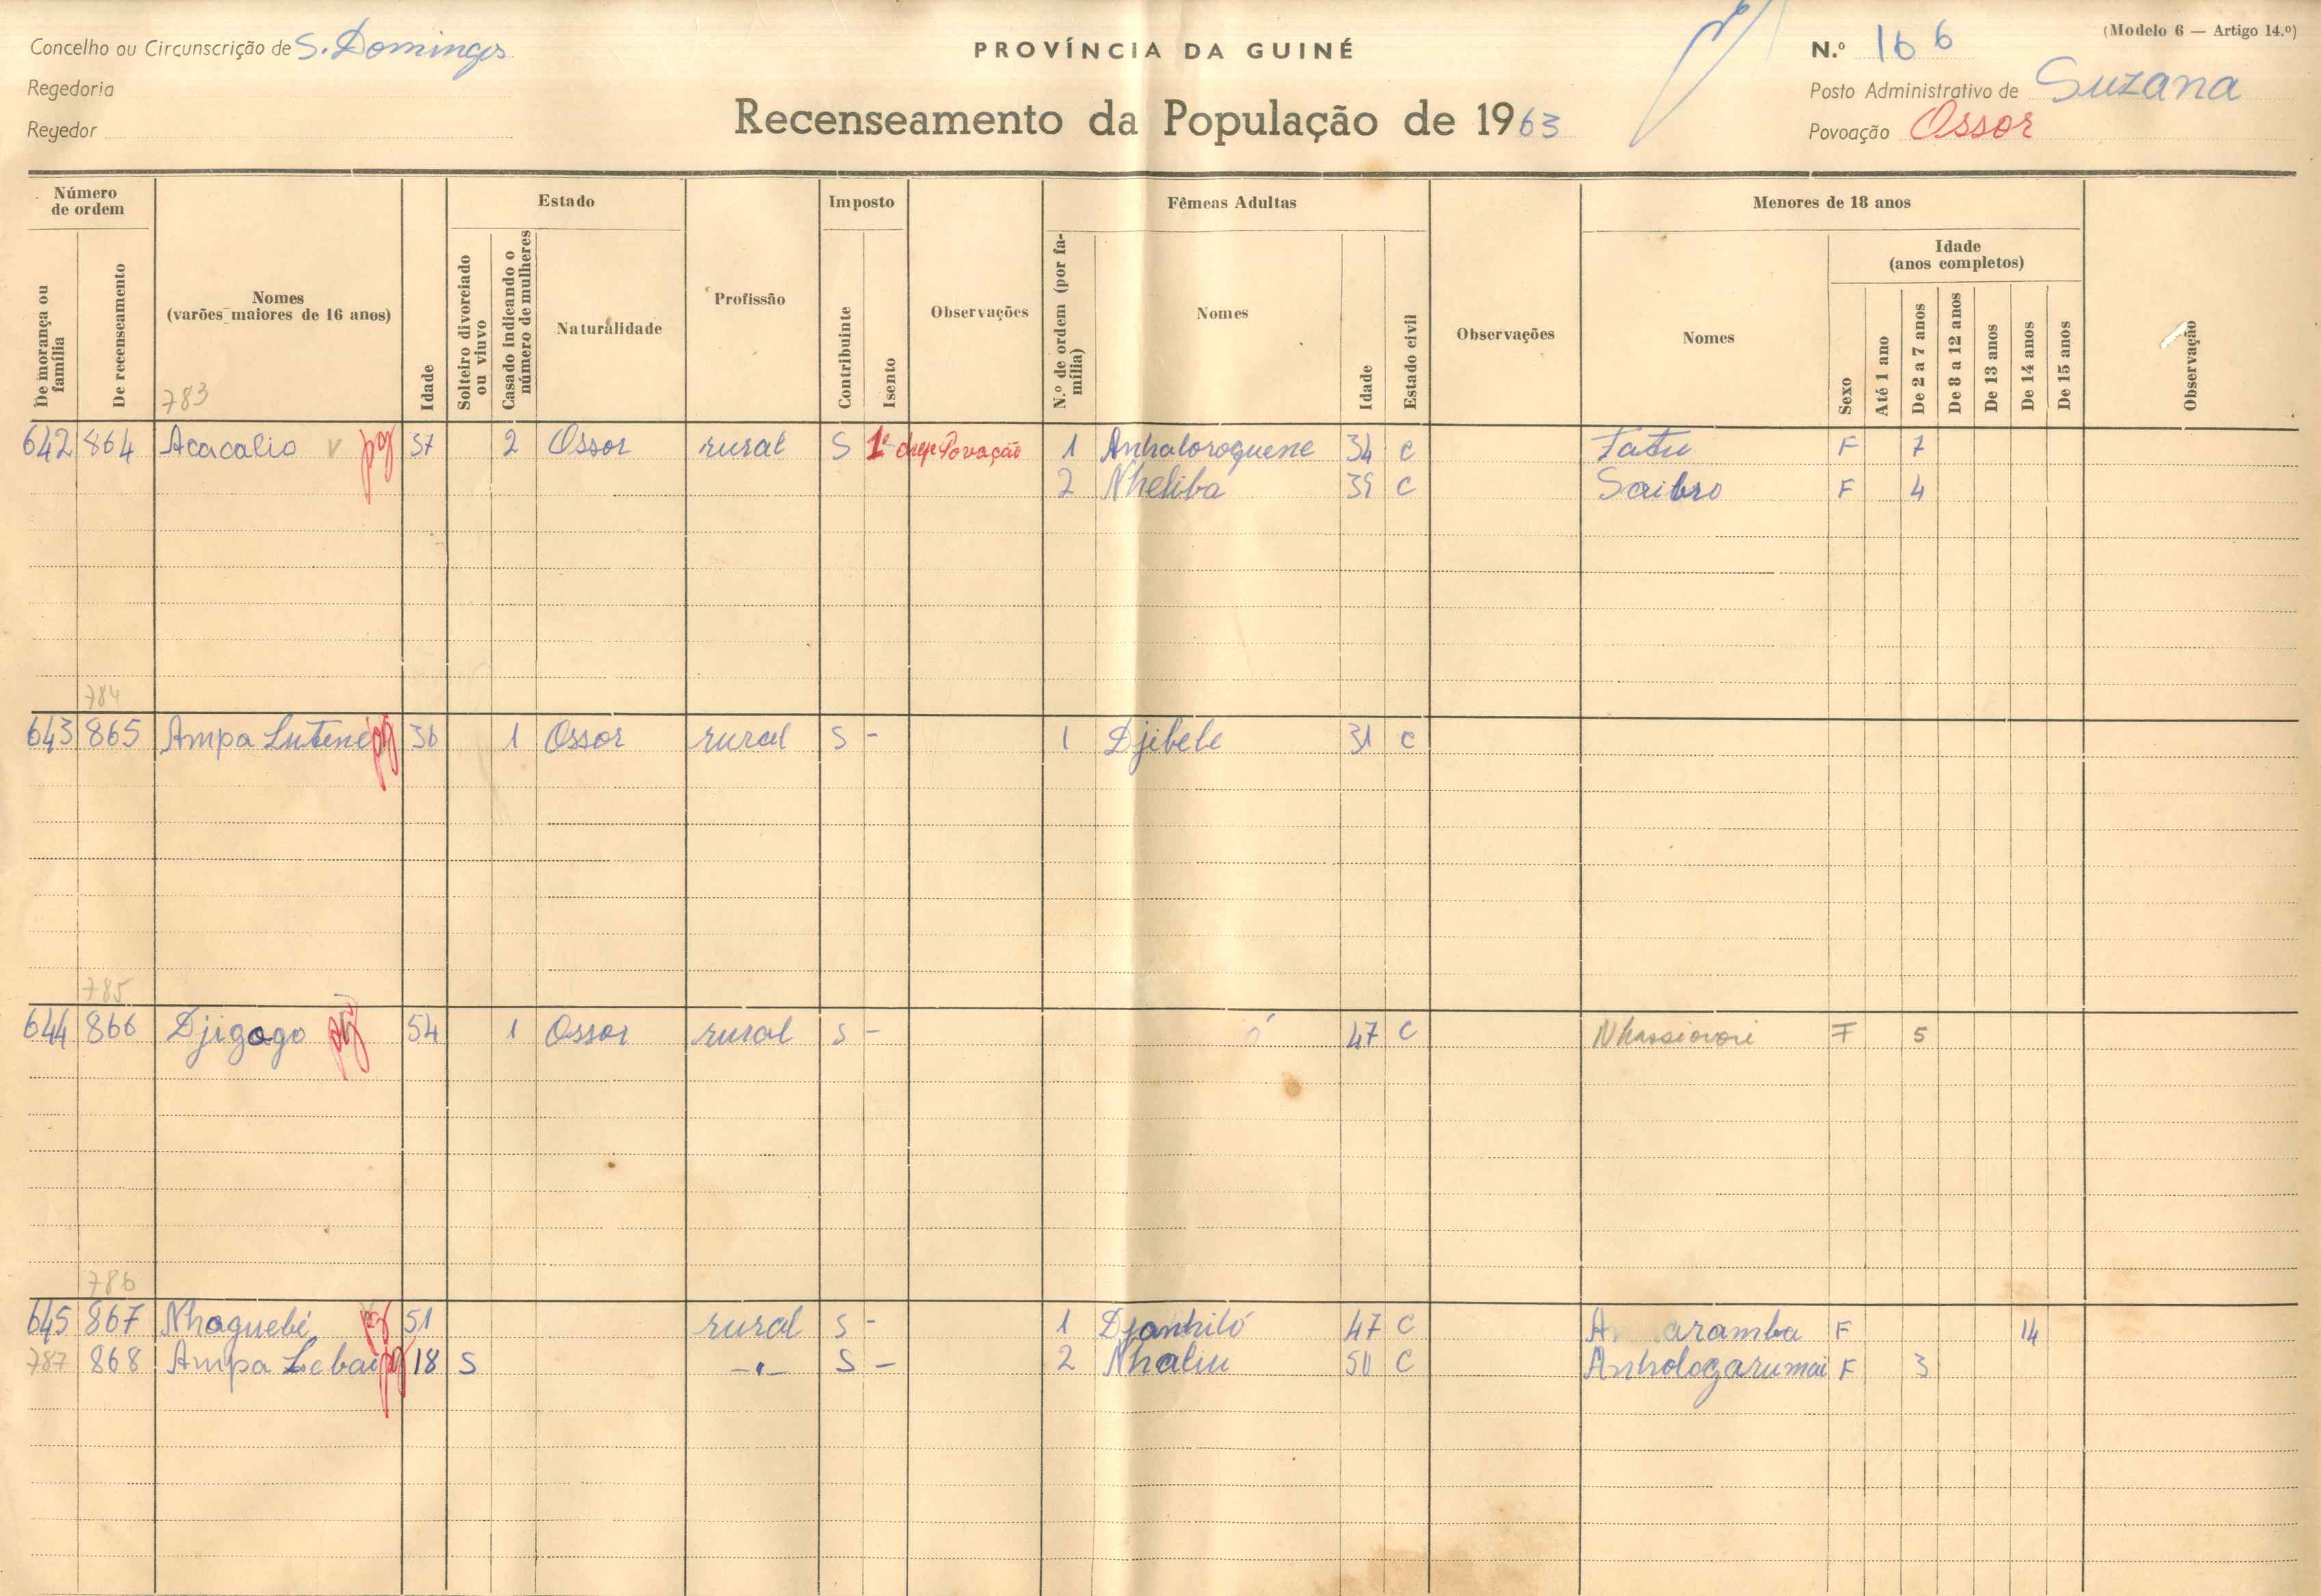 Concelho ou Circunscrição de S. Domingos
PROVÍNCIA DA GUINÉ
N.º 166
(Modelo 6 — Artigo 14.º)
Regedoria
Posto Administrativo de Suzana
Regedor
Recenseamento da População de 1963
Povoação Ossor
Número de ordem
Estado
Imposto
Fêmeas Adultas
Menores de 18 anos
De morança ou família
De recenseamento
Nomes
(varões maiores de 16 anos)
783
Idade
Solteiro divorciado ou viuvo
Casado indicando o número de mulheres
Naturalidade
Profissão
Contribuinte
Isento
Observações
N.º de ordem (por família)
Nomes
Idade
Estado civil
Observações
Nomes
Sexo
Idade
(anos completos)
Até 1 ano
De 2 a 7 anos
De 8 a 12 anos
De 13 anos
De 14 anos
De 15 anos
Observação
642 864 Acacalio v pg 57 2 Ossor rural S 1º chefe Povoação 1 Anhaloroquene 34 C Fatu F 7
2 Nheliba 39 C Saibro F 4
784
643 865 Ampa Lutene pg 36 1 Ossor rural S - 1 Djibele 31 C
785
644 866 Djigogo pg 54 1 Ossor rural S - 47 C Nhassiovori F 5
786
645 867 Nhaguebé pg 51 rural S - 1 Djanhiló 47 C aramba F 14
787 868 Ampa Lebai pg 18 S -"- S - 2 Nhaliu 50 C Anhologarumai F 3